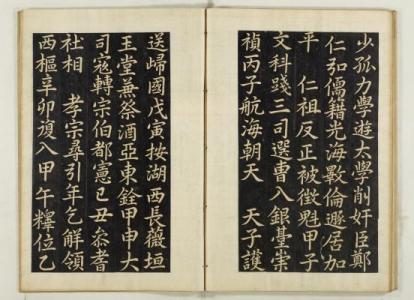 少孤力學遊太學削奸臣鄭
仁弘儒籍光海斁倫遯居加
平 仁祖反正被徵魁甲子
文科踐三司選曹入銀臺崇
禎丙子航海朝天 天子護
送歸國戊寅按湖西長薇垣
玉堂兼祭酒亞東銓甲申大
司寇轉宗伯都憲己丑叅耆
社相 孝宗尋引年乞解領
西樞辛卯復入甲午釋位乙